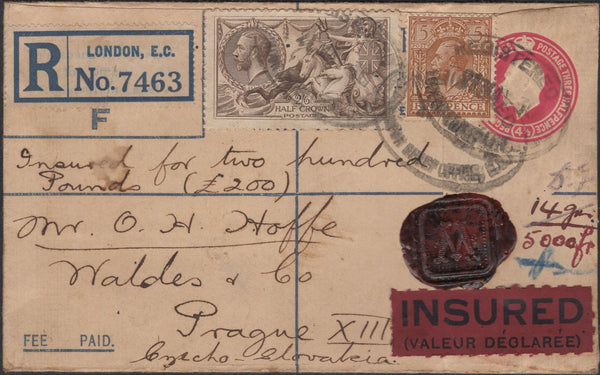 LONDON, E.C.
R No. 7463
F
2/6
HALF CROWN
POSTAGE
5 5
PENCE
POSTAGE THREE HALFPENCE
REGISTERED
Insured for two hundred
Pounds (£200)
Mr. O. H. Hoffe
Waldes & Co
Prague XIII
Czecho-Slovakia
14 gr.
5000 fr
W
INSURED
(VALEUR DÉCLARÉE)
FEE PAID.